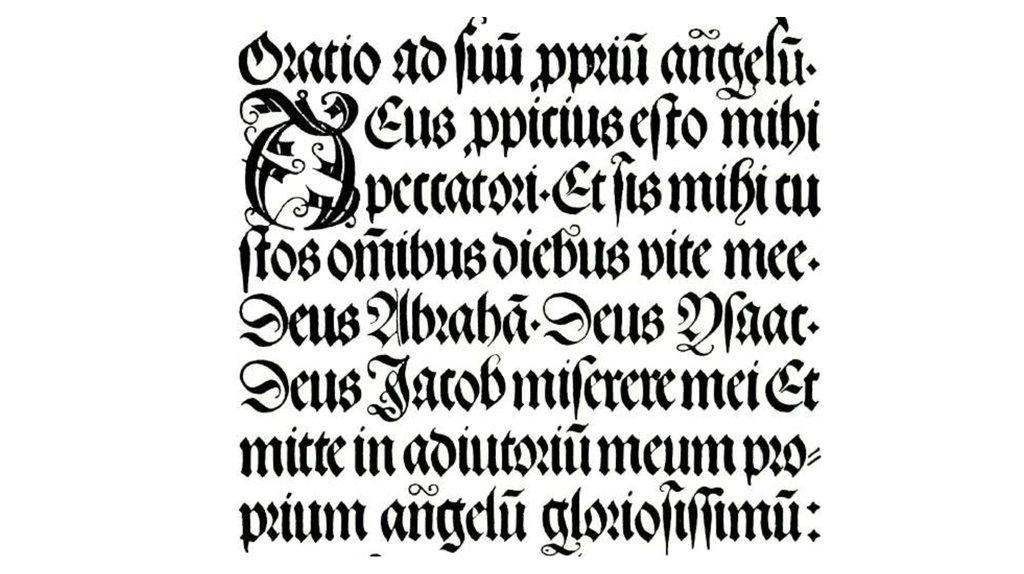 Oratio ad ſuū ꝓpriū an̄gelū.
DEus ꝓpicius eſto mihi
peccatori. Et ſis mihi cu
ſtos om̄ibus diebus vite mee.
Deus Abrahā. Deus Yſaac.
Deus Jacob miſerere mei Et
mitte in adiutoriū meum pro⸗
prium an̄gelū glorioſiſſimū: